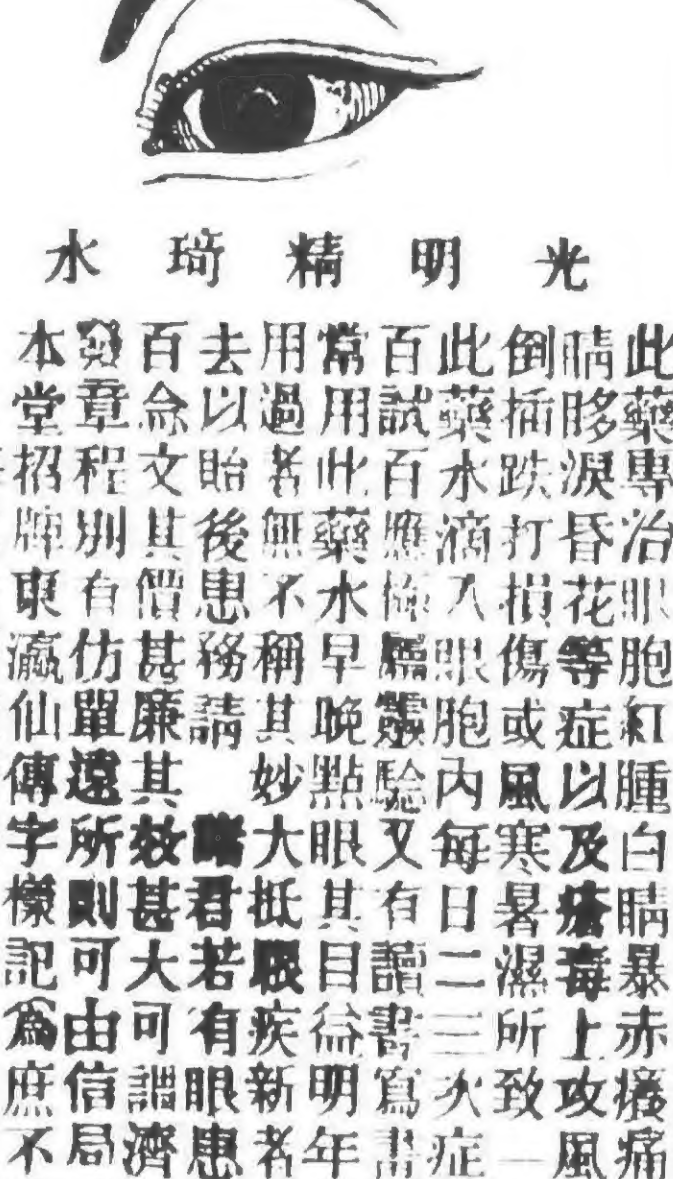 光明精琦水
此藥專治眼胞紅腫白睛暴赤癢痛
睛眵淚昏花等症以及瘡毒上攻風
倒插跌打損傷或風寒暑濕所致一
此藥水滴入眼胞內每日二三次症
百試百應極屬靈驗又有讀書寫書
常用此藥水早晚點眼其目益明年
用過者無不稱其妙大抵眼疾新者
去以貽後患務請　諸君若有眼患
百念文其價甚廉其效甚大可謂濟
發章程別有仿單遠所則可由信局
本堂招牌東瀛仙傳字樣記爲庶不